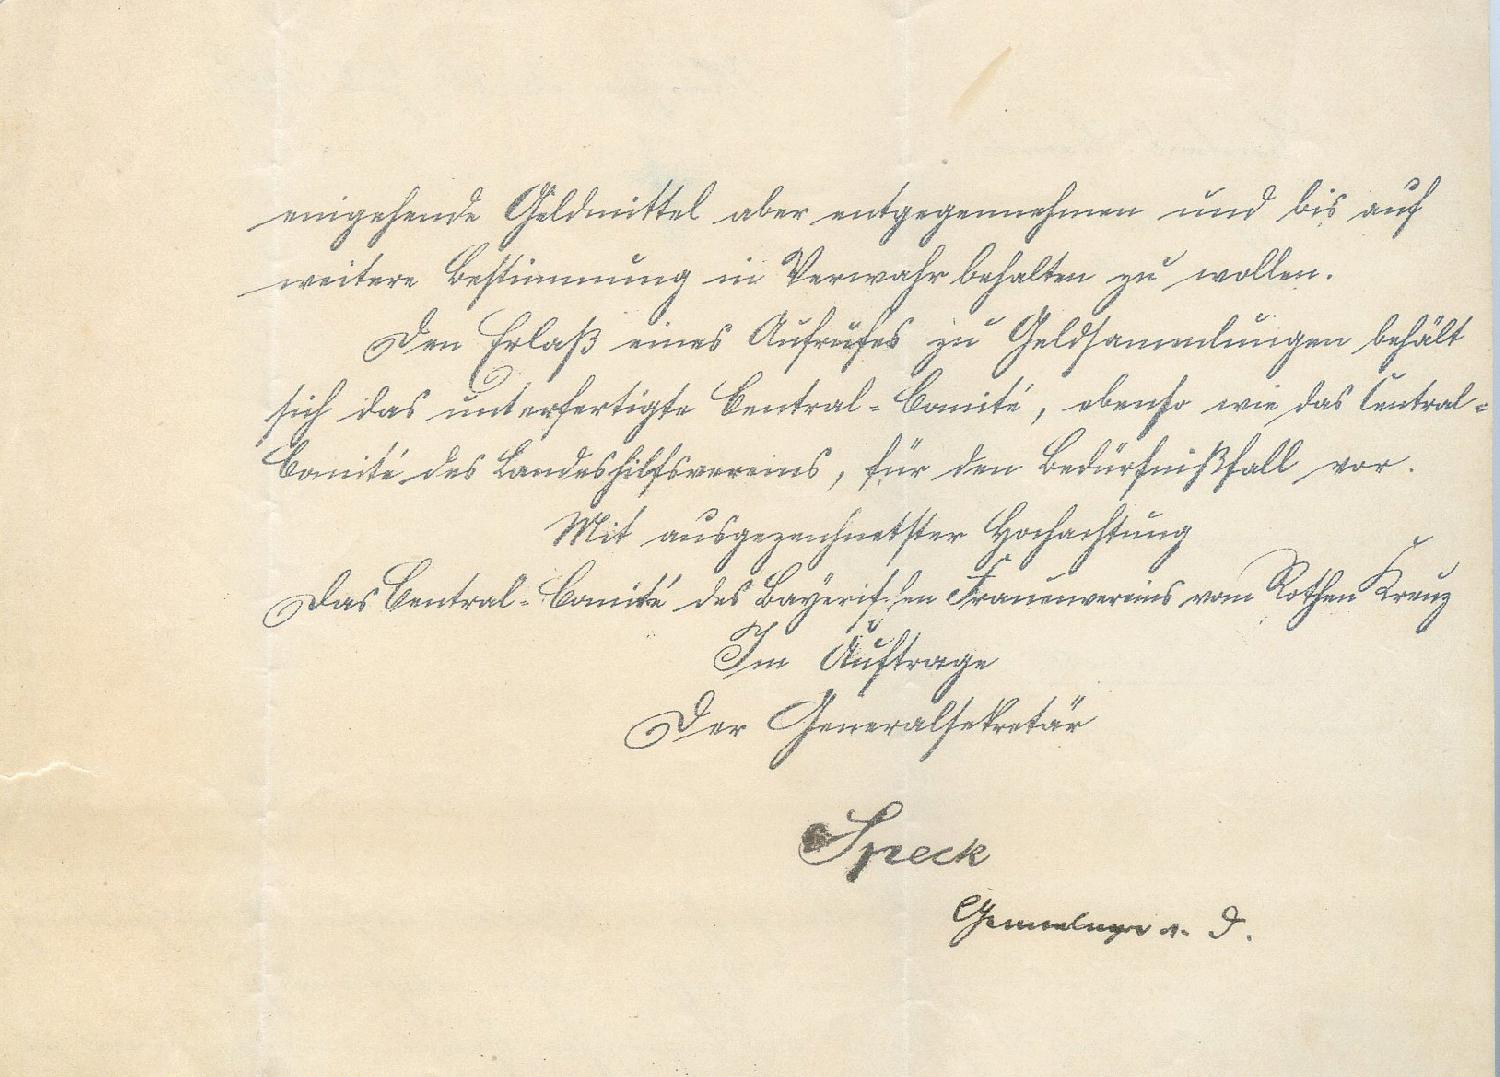 eingehende Geldmittel aber entgegennehmen und bis auf
weitere Bestimmung in Verwahr behalten zu wollen.
Den Erlaß eines Aufrufes zu Geldsammlungen behält
sich das unterfertigte Central-Comité, ebenso wie das Central-
Comité des Landeshilfsvereins, für den Bedürfnißfall vor.
Mit ausgezeichnetster Hochachtung
Das Central-Comité des Bayerischen Frauenvereins vom Rothen Kreuz
Im Auftrage
Der Generalsekretär
Speck
Generalmajor a. D.